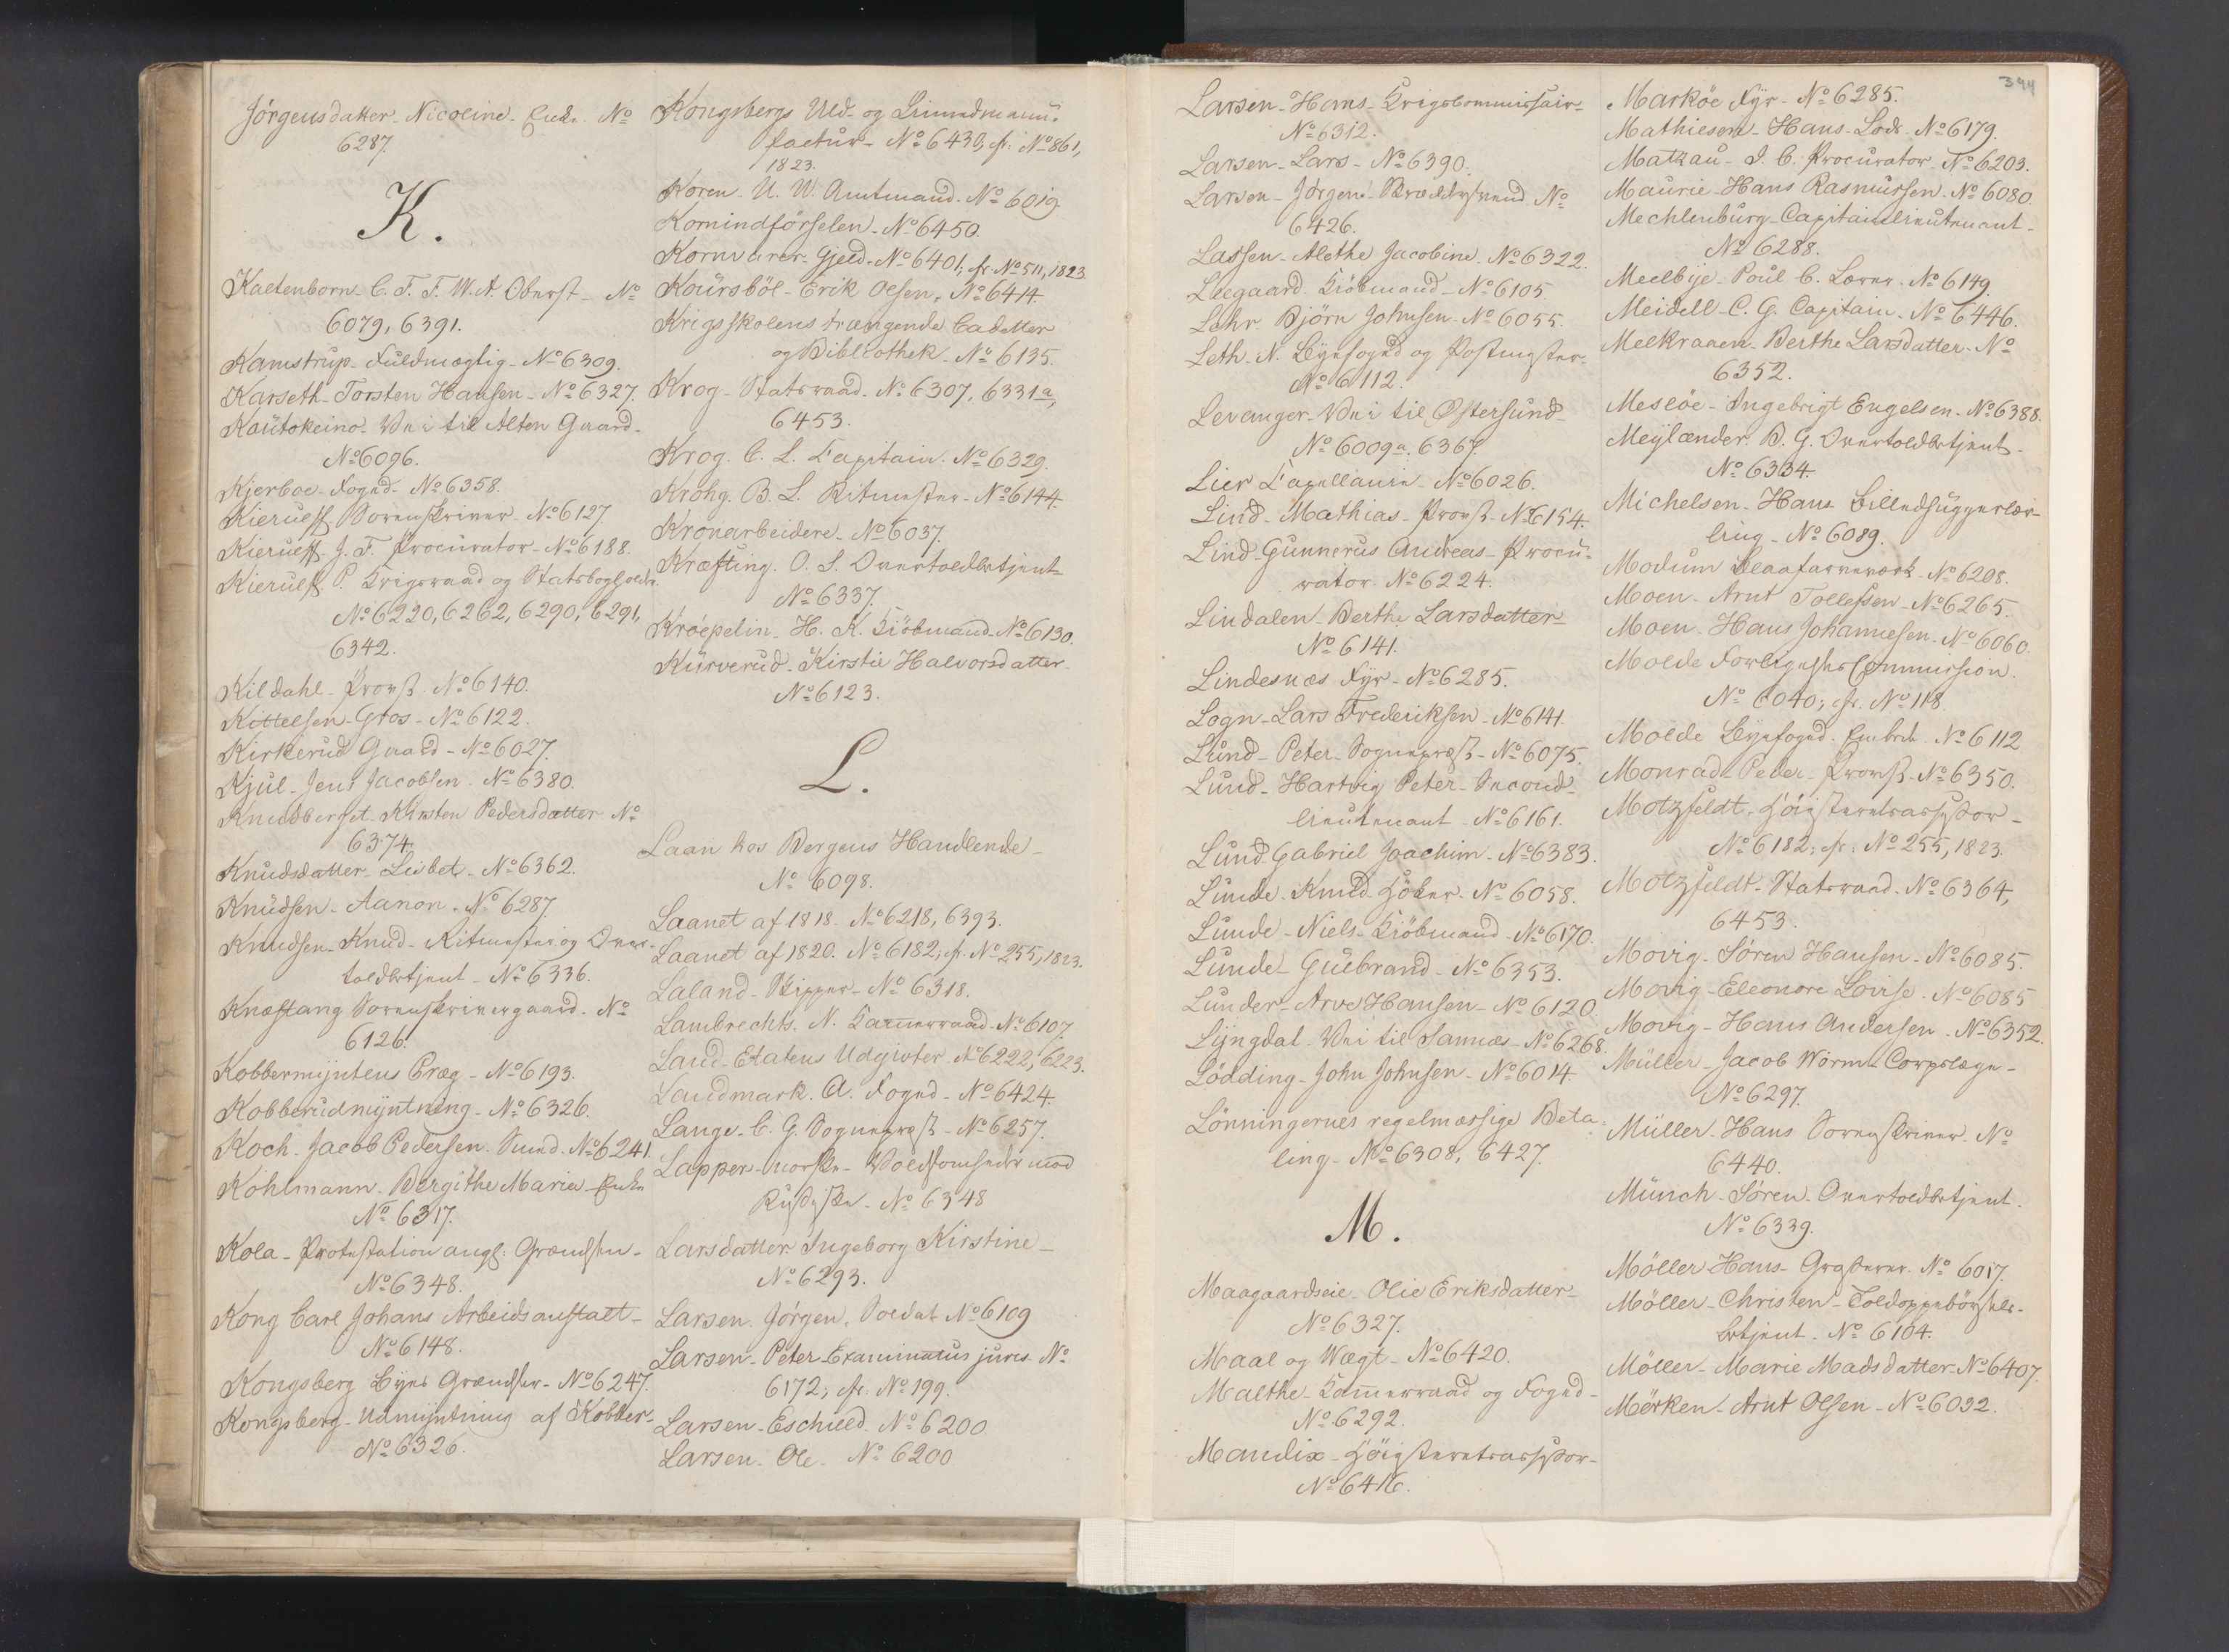 Jörgensdatter. Nicoline. Enke. No
6287.
K.
Kaltenborn. C. F. F. W. A. Oberst. No
6079, 6391.
Kamstrup. Fuldmægtig. No 6309.
Karseth. Torsten Hansen. No 6327.
Kautokeino. Vei til Alten Gaard.
No 6096.
Kjerboe. Foged. No 6358.
Kierulff Sorenskriver. No 6127
Kierulff. J. F. Procurator. No 6188.
Kierulff. P. Krigsraad og Statsbogholder
No 6220, 6262, 6290, 6291,
6342.
Kildahl. Provst. No 6140.
Kittelsen. Gros. No 6122.
Kirkerud Gaard. No 6027.
Kjul. Jens Jacobsen. No 6380.
Knudberset. Kirsten Pedersdatter No
6374.
Knudsdatter. Lisbet. No 6362.
Knudsen. Aanon. No 6287
Knudsen. Knud. Ritmester og Over-
toldbetjent. No 6336.
Knæstang Sorenskrivergaard. No
6126.
Kobbermyntens Præg. No 6193.
Kobberudmyntning. No 6326.
Koch. Jacob Pedersen. Smed. No 6241.
Kohlmann. Bergithe Maria Enke
No 6317.
Kola. Protestation angl. Grændsen.
No 6348.
Kong Carl Johans Arbeidsanstalt.
No 6148.
Kongsberg Byes Grændser. No 6247.
Kongsberg. Udmyntning af Kobber.
No 6326.
Kongsbergs Uld- og Linnedmanu-
factur. No 6430, cfr. No 861,
1823.
Koren. U. W. Amtmand. No 6019
Kornindförselen. No 6450.
Kornvarer. Gjeld. No 6401, cfr. No 511, 1823
Koursböl. Erik Olsen. No 6414
Krigsskolens trængende Cadetter
og Bibliothek. No 6135.
Krog. Statsraad. No 6307, 6331a,
6453.
Krog. C. L. Capitain. No 6329.
Krohg. B. L. Ritmester. No 6144.
Kronarbeidere. No 6037.
Kræfting. O. S. Overtoldbetjent
No 6337.
Kröepelin. H. K. Kiöbmand. No 6130.
Kurverud. Kirstie Halvorsdatter
No 6123.
L.
Laan hos Bergens Handlende.
No 6098.
Laanet af 1818. No 6218, 6393.
Laanet af 1820. No 6182, cfr. No 255, 1823.
Laland. Skipper. No 6318.
Lambrechts. N. Kammerraad. No 6107
Land-Etatens Udgivter. No 6222, 6223.
Landmark. A. Foged. No 6424.
Lange. C. G. Sognepræst. No 6257.
Lapper. norske. Voldsomheder mod
Russiske. No 6348
Larsdatter Ingeborg Kirstine.
No 6293.
Larsen. Jörgen. Soldat No 6109
Larsen. Peter. Examinatus juris. No
6172, cfr. No 199.
Larsen. Eschild. No 6200
Larsen. Ole. No 6200
394
Larsen. Hans. Krigscommissair.
No 6312.
Larsen. Lars. No 6390.
Larsen. Jörgen. Skræddersvend. No
6426.
Lassen. Alethe Jacobine. No 6322.
Leegaard. Kiöbmand. No 6105
Lehr. Björn Johnsen. No 6055.
Leth. N. Byefoged og Postmester.
No 6112.
Levanger. Vei til Östersund.
No 6009a, 6367.
Lier Capellanie. No 6026.
Lind. Mathias. Provst. No 6154.
Lind. Gunnerus Andreas. Procu-
rator. No 6224.
Lindalen. Berthe Larsdatter.
No 6141.
Lindesnæs Fyr. No 6285.
Logn. Lars Frederiksen. No 6141.
Lund. Peter. Sognepræst. No 6075.
Lund. Hartvig Peter. Second-
lieutenant. No 6161.
Lund. Gabriel Joachim. No 6383.
Lunde. Knud. Höker. No 6058.
Lunde. Niels. Kiöbmand. No 6170.
Lunde. Gulbrand. No 6353.
Lunder. Arve Hansen. No 6120.
Lyngdal. Vei til Samnæs. No 6268.
Lödding. John Johnsen. No 6014.
Lönningernes regelmæssige Beta-
ling. No 6308, 6427.
M.
Maagaardseie. Olie Eriksdatter.
No 6327.
Maal og Wægt. No 6420.
Malthe. Kammerraad og Foged.
No 6292.
Mandix. Höiesteretsassessor.
No 6416.
Marköe Fyr. No 6285.
Mathiesen. Hans. Lods. No 6179.
Matzau. J. C. Procurator. No 6203.
Maurie. Hans Rasmussen. No 6080
Mechlenburg. Capitainlieutenant.
No 6288.
Meelbye. Poul C. Lærer. No 6149.
Meidell. C. G. Capitain. No 6446.
Melkraaen. Berthe Larsdatter. No
6352.
Meslöe. Ingebrigt Engelsen. No 6388.
Meylænder. B. G. Overtoldbetjent.
No 6334.
Michelsen. Hans Billedhuggerlær-
ling. No 6089.
Modum Blaafarveværk. No 6208.
Moen. Arnt Tollefsen. No 6265.
Moen. Hans Johannesen. No 6060.
Molde Forligelses Commission.
No 6040; cfr. No 118
Molde Byefoged. Embede. No 6112
Monrad. Peder. Provst. No 6350.
Motzfeldt. Höiesteretsassessor.
No 6182; cfr. No 255, 1823.
Motzfeldt. Statsraad. No 6364,
6453.
Movig. Sören Hansen. No 6085.
Movig. Eleonore Lovise. No 6085
Movig. Hans Andersen. No 6352.
Müller. Jacob Worm. Corpslæge.
No 6297.
Müller. Hans Sorenskriver. No
6440.
Münch. Sören. Overtoldbetjent.
No 6339.
Möller Hans. No 6017.
Möller. Christen. Toldoppebörsels-
betjent. No 6104.
Möller. Marie Madsdatter. No 6407.
Mörken. Arnt Olsen. No 6032.